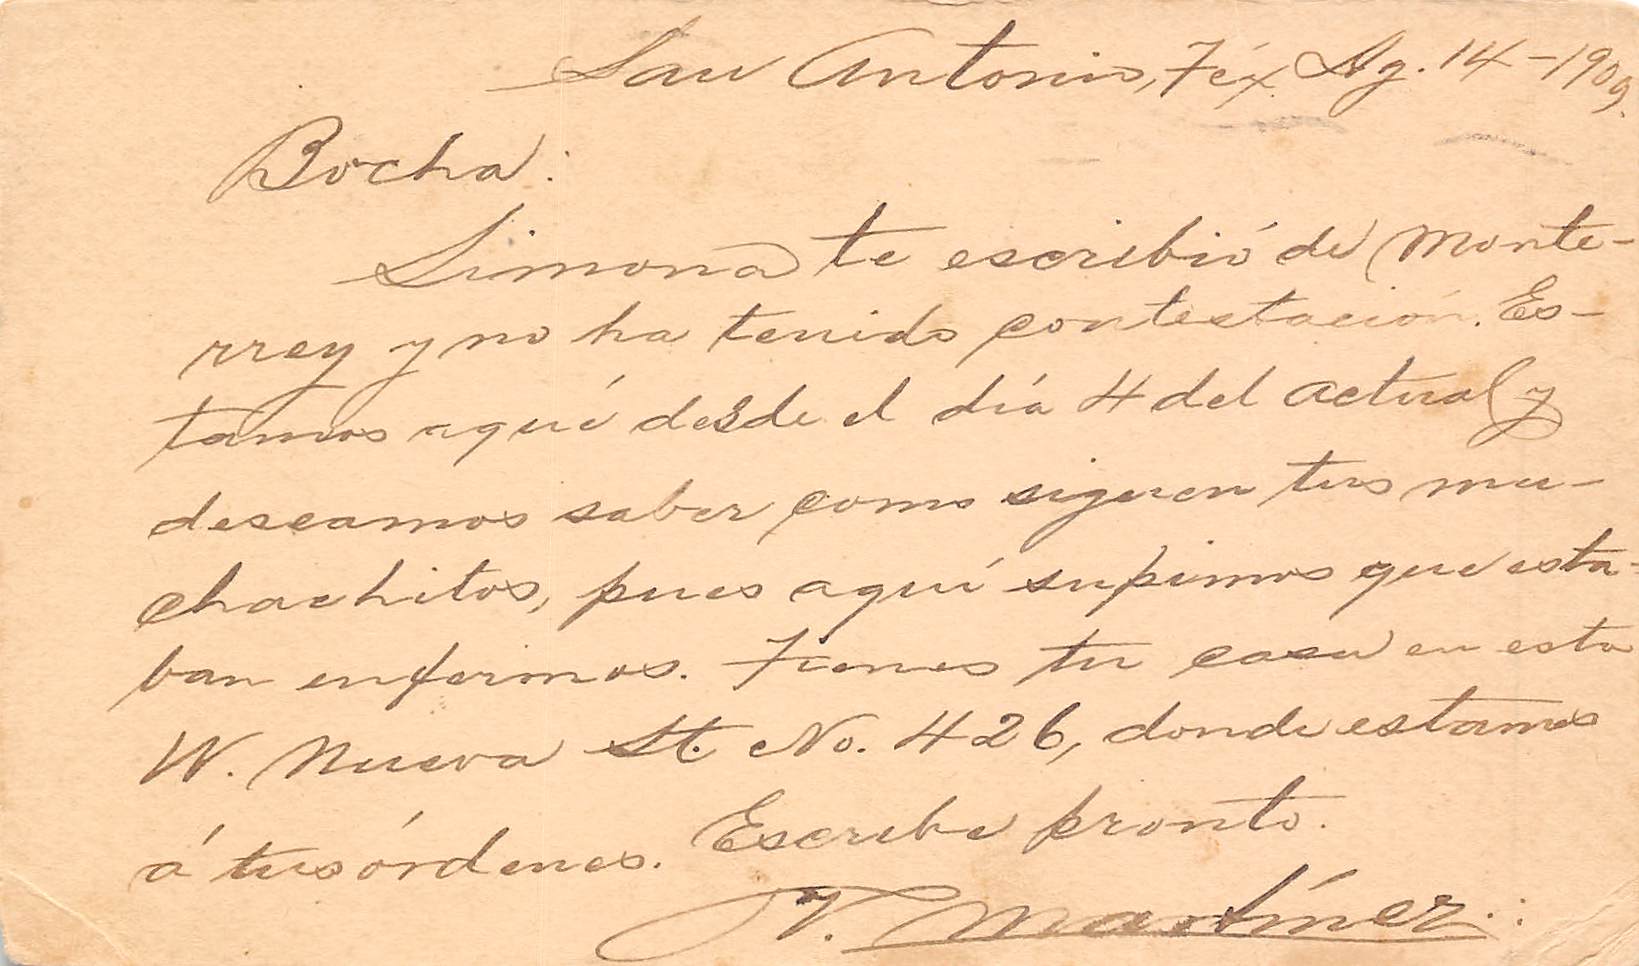 San Antonio, Téx. Ag. 14-1909.
Bocha:
Simona te escribió de Monte-
rrey y no ha tenido contestación. Es-
tamos aquí desde el día 4 del actual y
deseamos saber como siguen tus mu-
chachitos, pues aquí supimos que esta-
ban enfermos. Tienes tu casa en esta
W. Nueva St. No. 426, donde estamos
á tus órdenes. Escribe pronto.
N. Martínez.